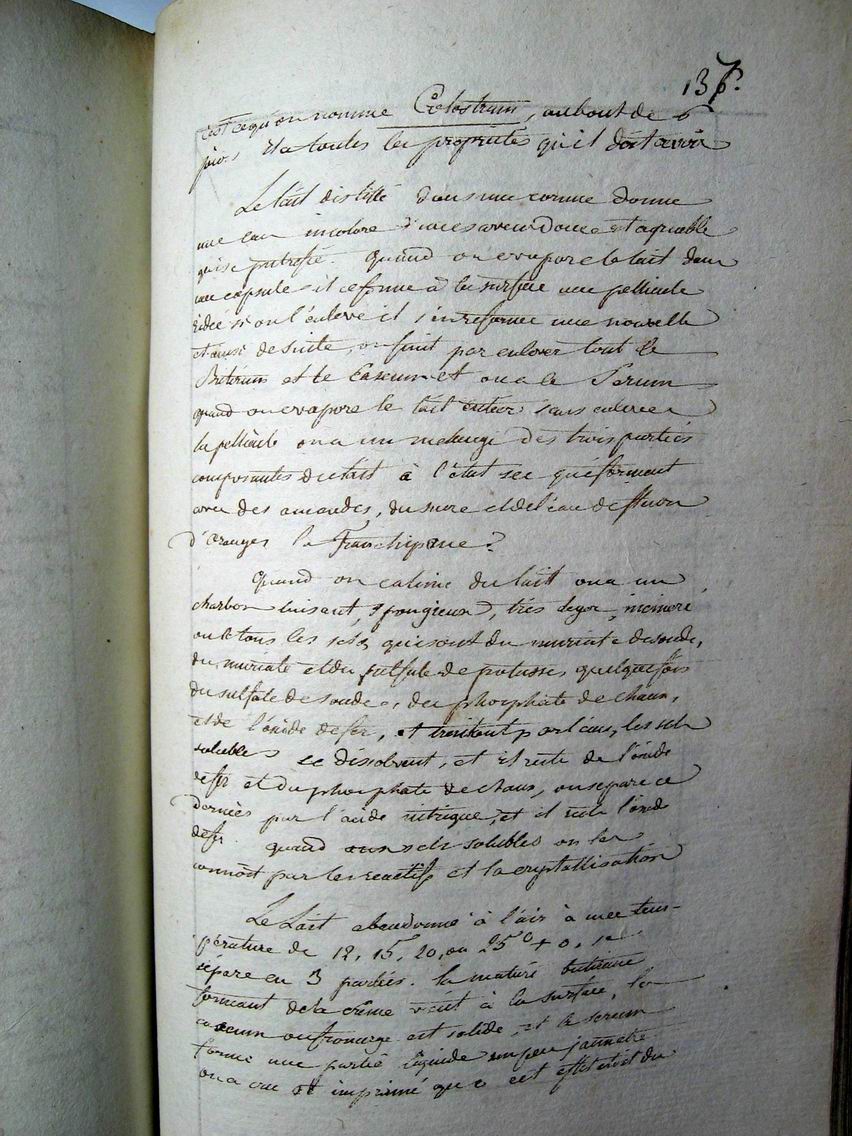 137.
c'est ce qu'on nomme Colostrum, au bout de 6
jours il a toutes les propriétés qu'il doit avoir
Le lait distillé dans une cornue donne
une eau incolore d'une saveur douce et agreable
qui se putrefie. quand on evapore le lait dans
une capsule il se forme à la surface une pellicule
ridée si on l'enleve il s'en reforme une nouvelle
et ainsi de suite, on finit par enlever tout le
Butirum et le Caseum et on a le Serum
quand on evapore le lait entier sans enlever
la pellicule on a un melange des trois parties
composantes du lait à l'état sec qui forment
avec des amandes, du sucre et de l'eau de fleurs
d'oranges la Franchipane.
Quand on calcine du lait on a un
charbon luisant, spongieux, très leger, incinéré
on a tous les sels qui sont du muriate de soude,
du muriate et du sulfate de potasse, quelquefois
du sulfate de soude, du phosphate de chaux,
et de l'oxide de fer, et traitant par l'eau, les sels
solubles se dissolvent, et il reste de l'oxide
de fer et du phosphate de chaux, on separe ce
dernier par l'acide nitrique, et il reste l'oxide
de fer. quand aux sels solubles on les
connoit par les reactifs et la crystallisation
Le Lait abandonné à l'air à une tem-
pérature de 12, 15, 20, ou 25° + 0, se
sépare en 3 parties. la matiere butireuse
formant de la crême vient à la surface, le
caseum ou fromage est solide, et le serum
forme une partie liquide un peu jaunatre
on a cru et imprimé que cet effet etoit du